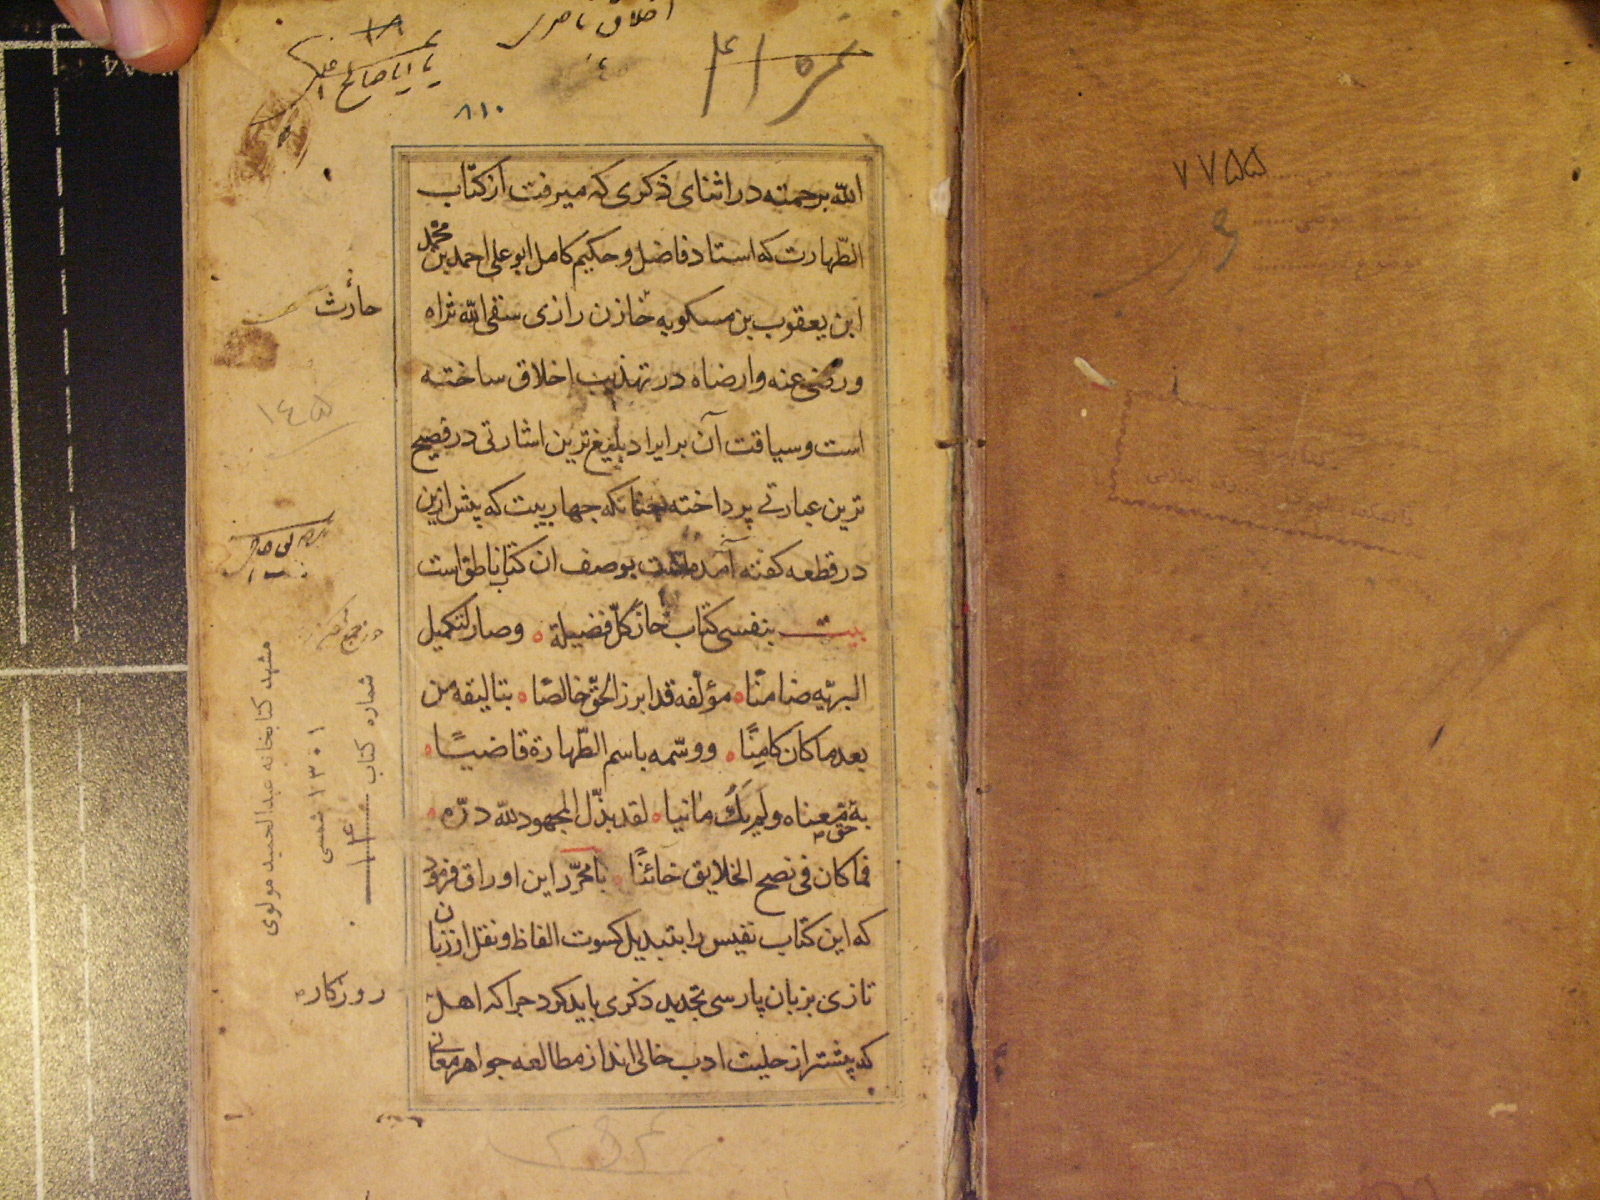 اخلاق ناصری
یا ابا صالح
۸۱۰
نمره ۴۱
الله برحمته در اثنای ذکری که میرفت از کتاب
الطّهارت که استاد فاضل و حکیم کامل ابو علی احمد بن محمّد
ابن یعقوب بن مسکویه خازن رازی سقی اللّه ثراه
و رضی عنه و ارضاه در تهذیب اخلاق ساخته
است و سیاقت آن بر ایراد بلیغ ترین اشارتی در فصیح
ترین عبارتی پرداخته چنانکه چهار بیت که پیش ازین
در قطعه کفته آمده است بوصف ان کتاب ناطق است
بیت بنفسی کتاب حاز کلّ فضیلة وصار لتکمیل
البریّه ضامنًا مؤلّفه قد ابرز الحقّ خالصًا بتالیفه من
بعد ما کان کامِنًا و وسّمه باسم الطّهارة قاضیًا
به حقّ معناه ولم یَکُ مائنا لقد بذّل المجهود للّه درّه
فماکان فی نصح الخلایق خائنًا با محرّر این اوراق فرمود
که این کتاب نفیس را بتبدیل کسوت الفاظ و نقل از زبان
تازی بزبان پارسی تجدید ذکری باید کرد چرا که اهل
که پیشتر از حلیت ادب خالی اند از مطالعه جواهر معانی
حارث
۱٤۵
روزکار
مشهد کتابخانه عبدالحمید مولوی
۱۳۰۱ شمسی
شماره کتاب ۱۴
۷۷۵۵